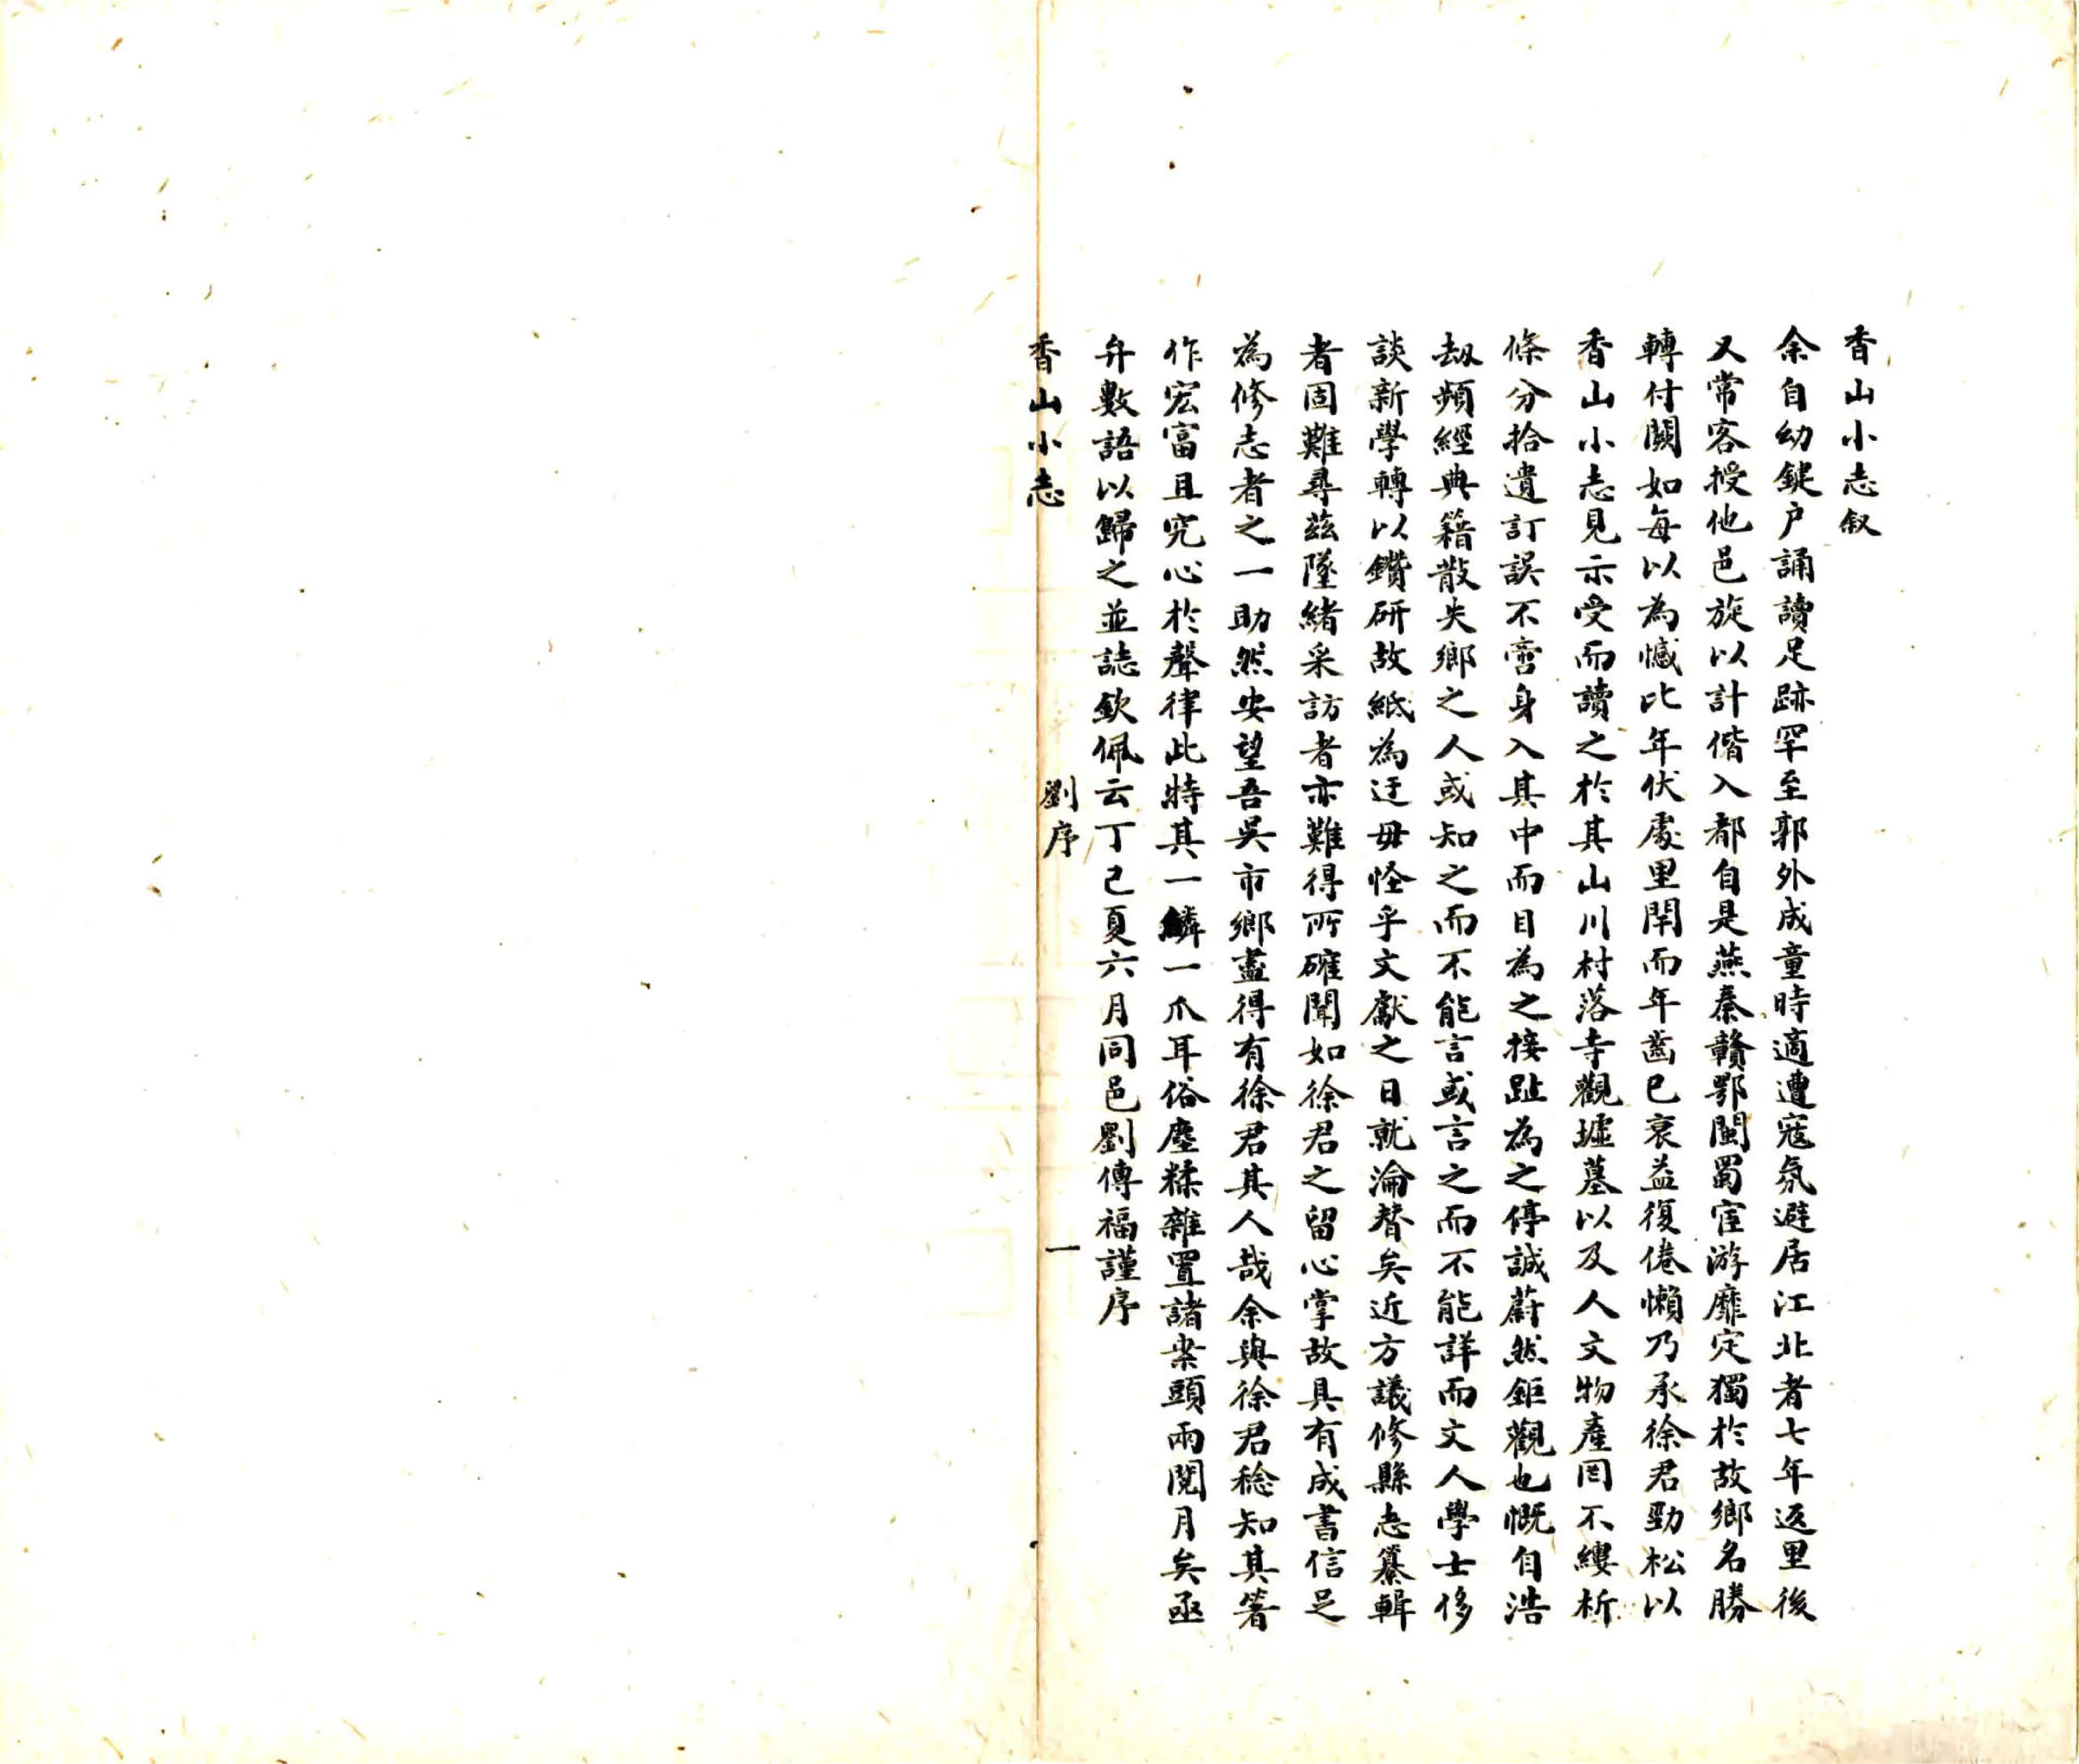 香山小志叙
余自幼鍵户誦讀足跡罕至郭外成童時適遭寇氛避居江北者七年返里後
又常客授他邑旋以計偕入都自是燕秦贛鄂閩蜀宦游靡定獨於故鄉名勝
轉付闕如每以為憾比年伏處里閈而年齒已衰益復倦懶乃承徐君勁松以
香山小志見示受而讀之於其山川村落寺觀墟墓以及人文物產罔不縷析
條分拾遺訂誤不啻身入其中而目為之接趾為之停誠蔚然鉅觀也慨自浩
劫頻經典籍散失鄉之人或知之而不能言或言之而不能詳而文人學士侈
談新學轉以鑽研故紙為迂毋怪乎文獻之日就淪替矣近方議修縣志纂輯
者固難尋茲墜緒采訪者亦難得所確聞如徐君之留心掌故具有成書信足
為修志者之一助然安望吾吳市鄉盡得有徐君其人哉余與徐君稔知其箸
作宏富且究心於聲律此特其一鱗一爪耳俗塵糅雜置諸案頭兩閱月矣亟
弁數語以歸之並誌欽佩云丁巳夏六月同邑劉傳福謹序
香山小志 劉序 一